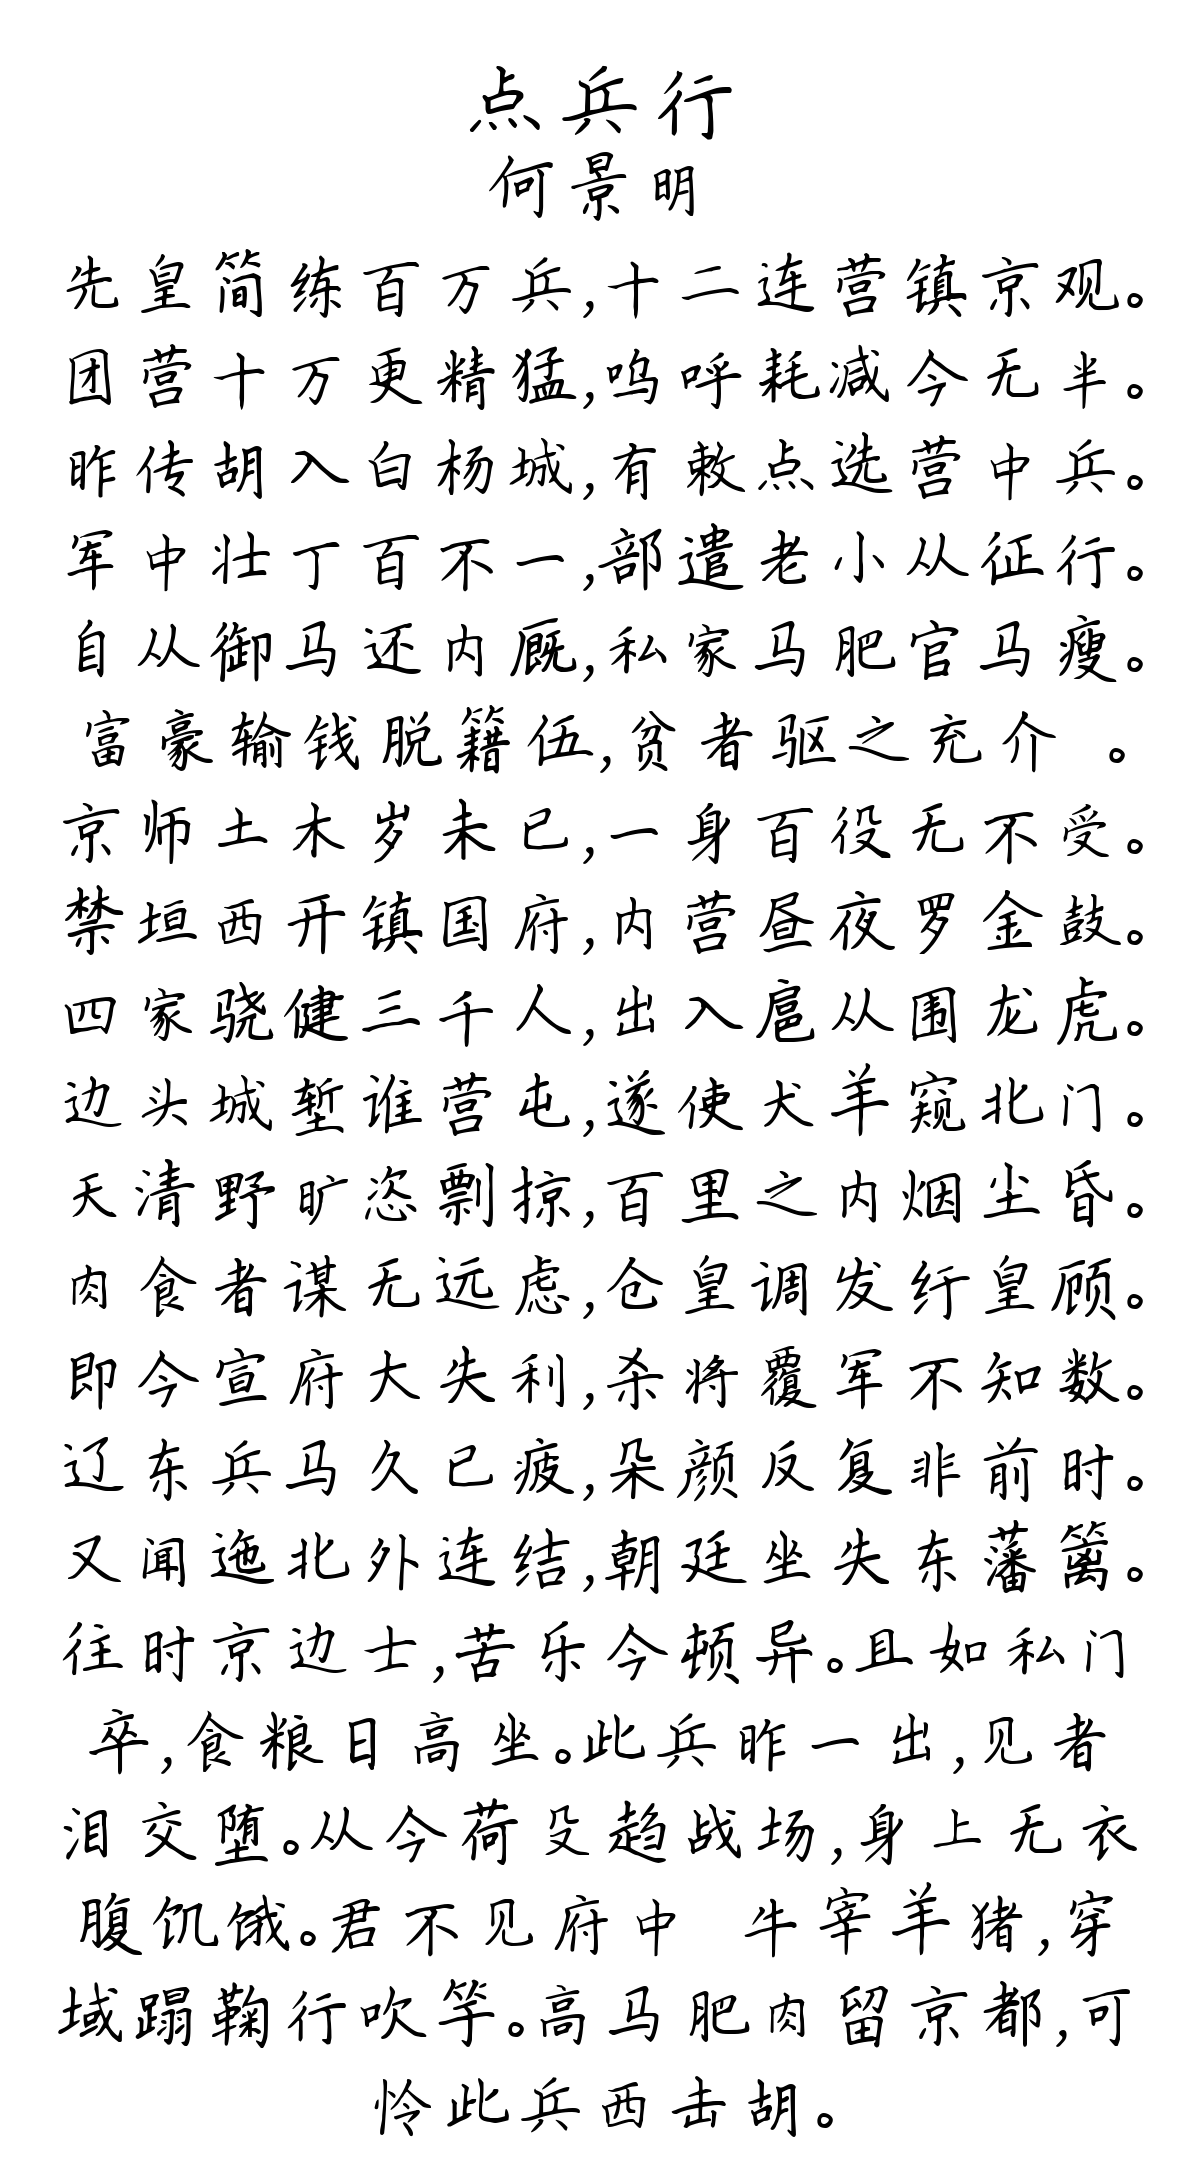 点兵行
何景明
先皇简练百万兵,十二连营镇京观。
团营十万更精猛,呜呼耗减今无半。
昨传胡入白杨城,有敕点选营中兵。
军中壮丁百不一,部遣老小从征行。
自从御马还内厩,私家马肥官马瘦。
富豪输钱脱籍伍,贫者驱之充介 。
京师土木岁未已,一身百役无不受。
禁垣西开镇国府,内营昼夜罗金鼓。
四家骁健三千人,出入扈从围龙虎。
边头城堑谁营屯,遂使犬羊窥北门。
天清野旷恣剽掠,百里之内烟尘昏。
肉食者谋无远虑,仓皇调发纡皇顾。
即今宣府大失利,杀将覆军不知数。
辽东兵马久已疲,朵颜反复非前时。
又闻迤北外连结,朝廷坐失东藩篱。
往时京边士,苦乐今顿异。且如私门
卒,食粮日高坐。此兵昨一出,见者
泪交堕。从今荷殳趋战场,身上无衣
腹饥饿。君不见府中 牛宰羊猪,穿
域蹋鞠行吹竽。高马肥肉留京都,可
怜此兵西击胡。